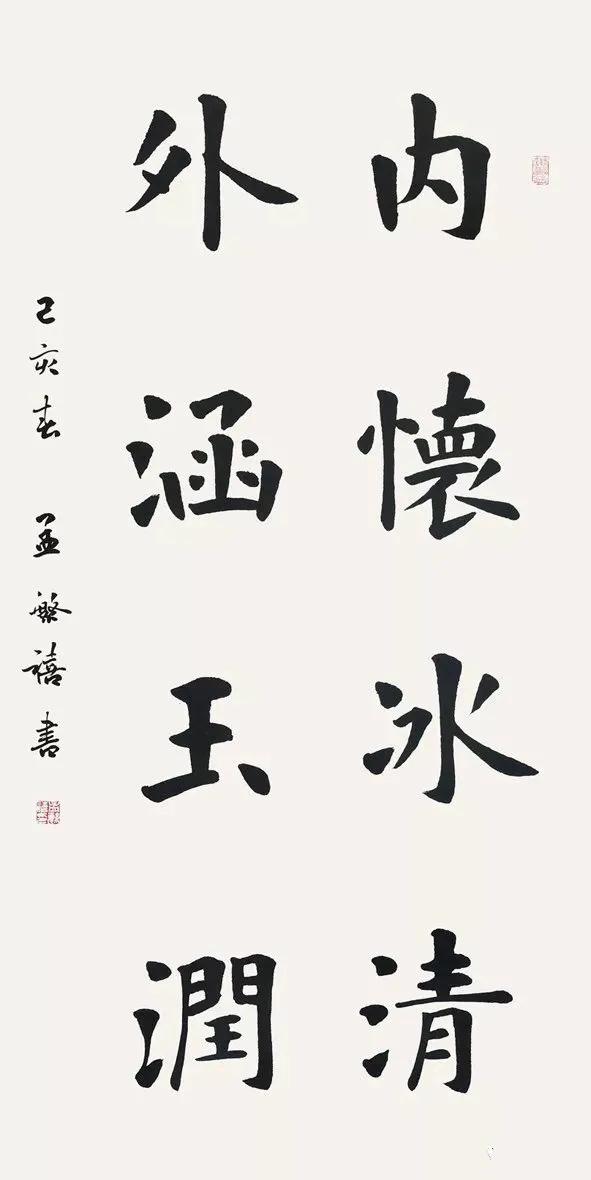 内懷冰清
外涵玉潤
己亥春 孟繁禧書